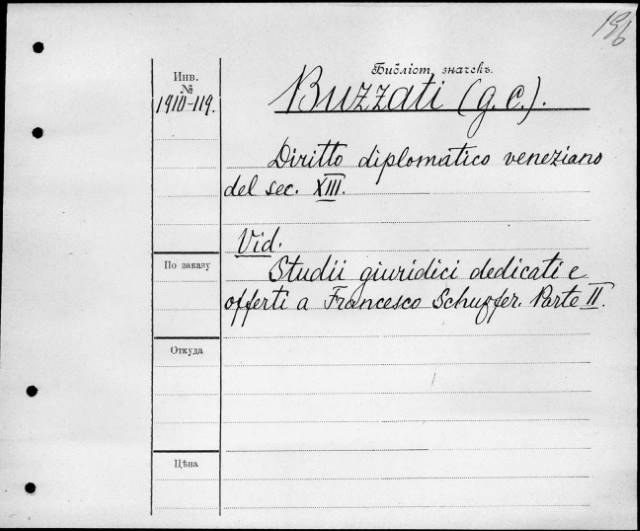 196
Библіот. значекъ.
Инв.
№
1910-119.
Buzzati (g. c.).
Diritto diplomatico veneziano
del sec. XIII.
Vid.
Studii giuridici dedicati e
offerti a Francesco Schupfer. Parte II.
По заказу
Откуда
Цѣна